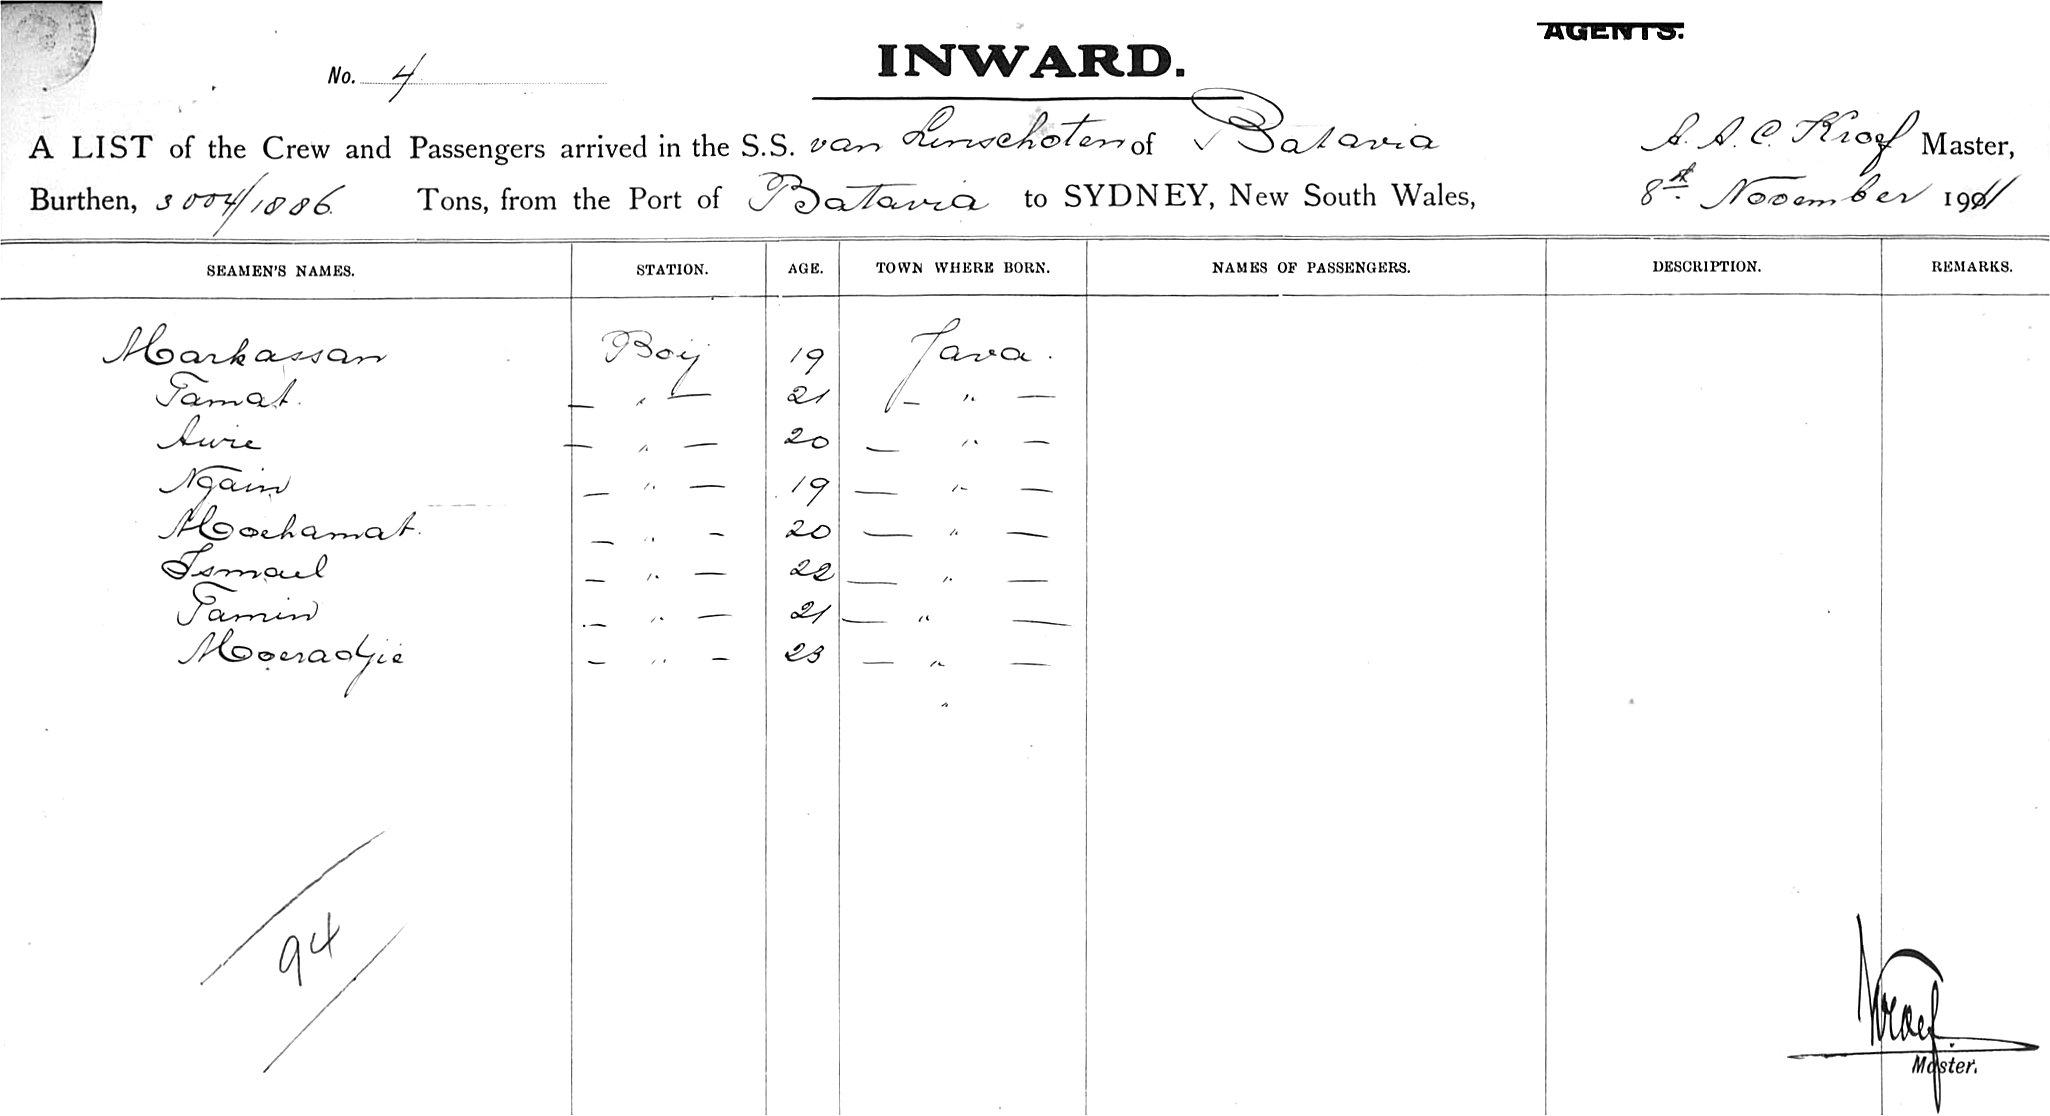 AGENTS.
INWARD.
No. 4
A LIST of the Crew and Passengers arrived in the S.S. van Linschoten of Batavia A. A. C. Kroef Master,
Burthen, 3004/1886 Tons, from the Port of Batavia to SYDNEY, New South Wales, 8st November 1911
SEAMEN'S NAMES. STATION. AGE. TOWN WHERE BORN. NAMES OF PASSENGERS. DESCRIPTION. REMARKS.
Markassan Boy 19 Java.
Tamat. — " — 21 — " —
Awie — " — 20 — " —
Ngain — " — 19 — " —
Mochamat. — " — 20 — " —
Ismael — " — 22 — " —
Tamin — " — 21 — " —
Moeradjie — " — 23 — " —
"
94
Kroef.
Master.